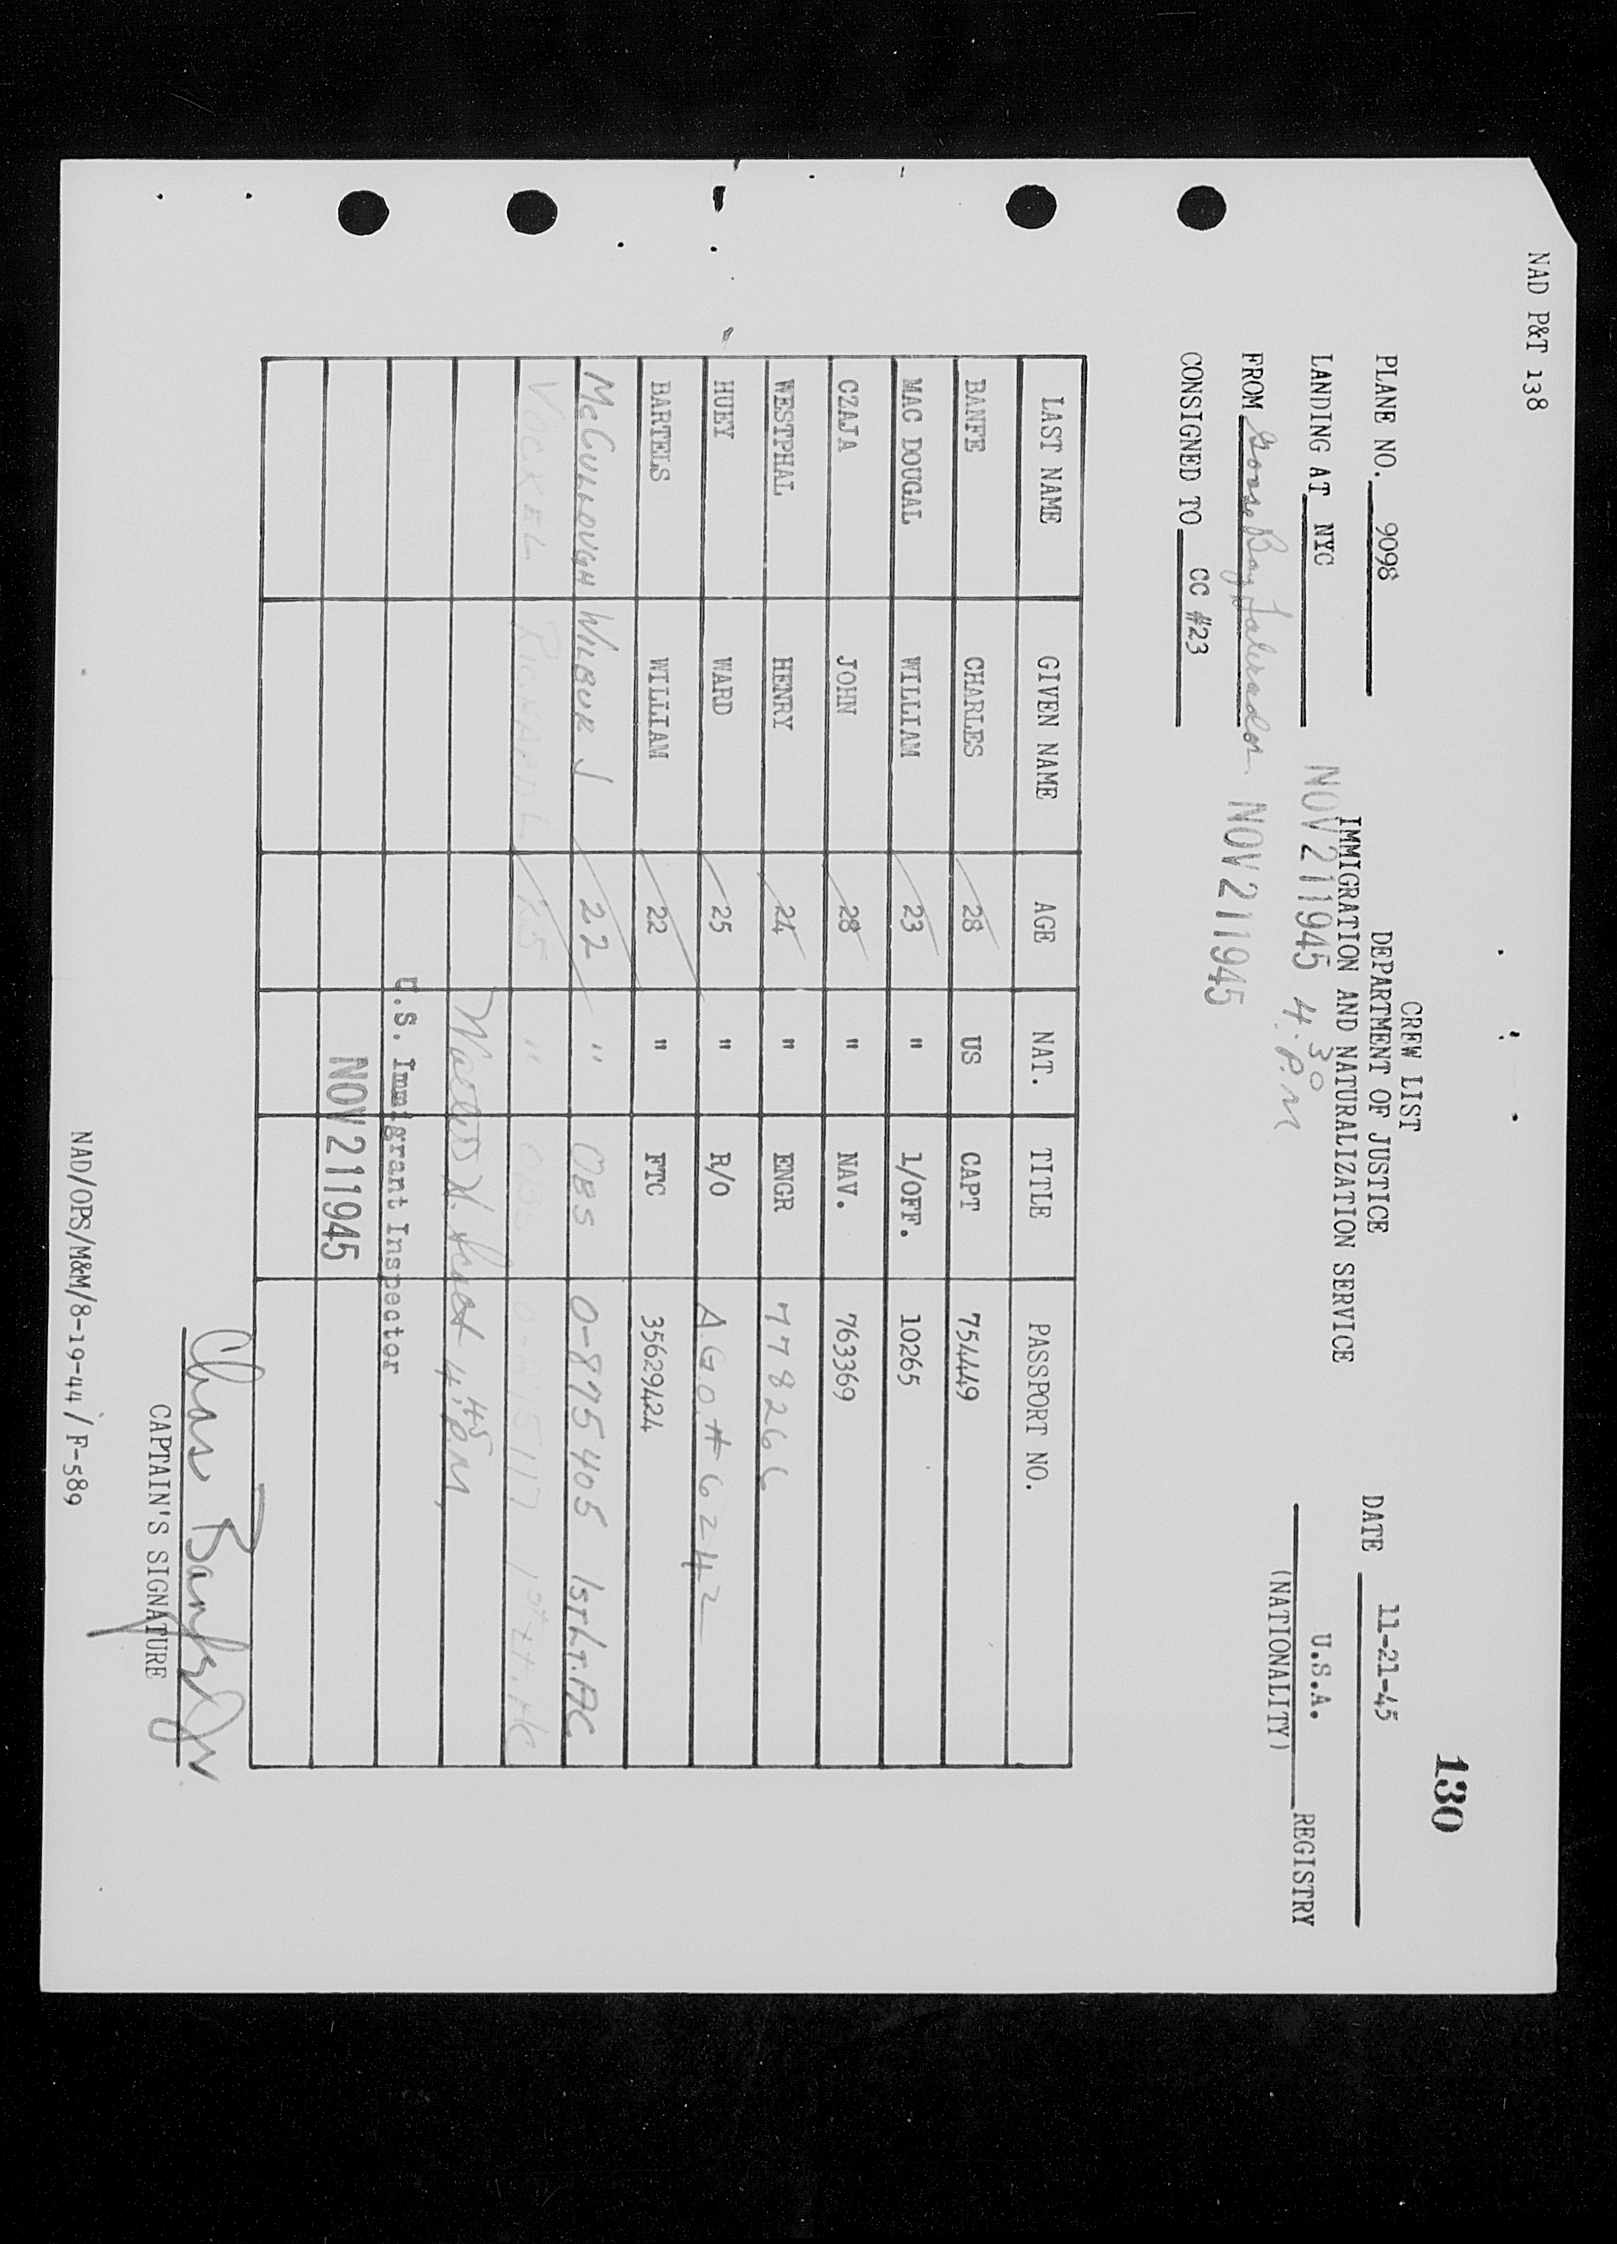 NAD P&T 138
130
CREW LIST
DEPARTMENT OF JUSTICE
IMMIGRATION AND NATURALIZATION SERVICE
PLANE NO. 9098
DATE 11-21-45
LANDING AT NYC
NOV 21 1945 4.30 P.M
U.S.A. REGISTRY
(NATIONALITY)
FROM Goose Bay, Labrador NOV 21 1945
CONSIGNED TO CC #23
LAST NAME GIVEN NAME AGE NAT. TITLE PASSPORT NO.
BANFE CHARLES 28 US CAPT 754449
MAC DOUGAL WILLIAM 23 " 1/OFF. 10265
CZAJA JOHN 28 " NAV. 763369
WESTPHAL HENRY 24 " ENGR 778266
HUEY WARD 25 " R/O A.G.O. # 6242
BARTELS WILLIAM 22 " FTC 35629424
McCULLOUGH WILBUR J 22 " OBS O-875405 1ST LT. AC
VOCKEL 25 " 1st Lt. AC
4:45 P.M.
U.S. Immigrant Inspector
NOV 21 1945
Chas Banfe Jr
CAPTAIN'S SIGNATURE
NAD/OPS/M&M/8-19-44/F-589